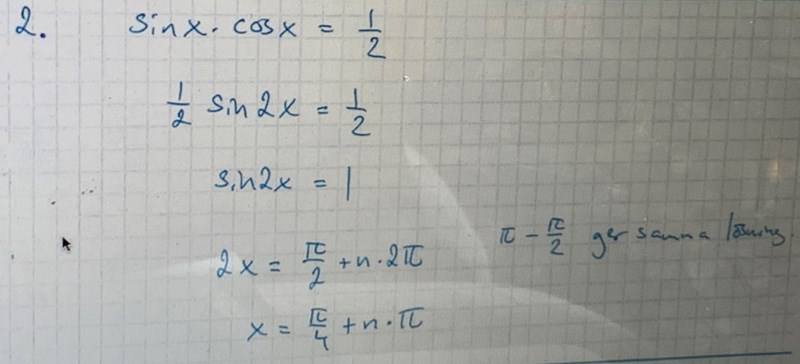 2. sin x · cos x = 1/2
1/2 sin 2x = 1/2
sin 2x = 1
2x = π/2 + n · 2π
π - π/2 ger samma lösning.
x = π/4 + n · π